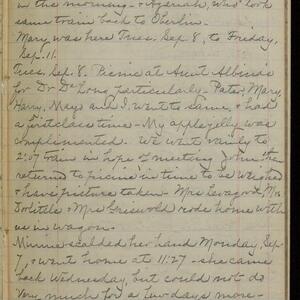 in the morning - & Azariah, who took
same train back to Oberlin.
Mary was here Tues. Sep. 8, to Friday,
Sep. 11.
Tues. Sep. 8. Picnic at Aunt Albinas
for Dr De Long particularly - Pater, Mary,
Harry, May and I went to same, & had
a firstclass time - My apple jelly was
complimented. We went vainly to
2:07 train in hope of meeting John, then
returned to picnic in time to be weighed
& have picture taken - Mrs & Mr.
Doolittle & Mrs Griswold rode home with
us in wagon.
Minnie scalded her hand Monday, Sep.
7, & went home at 11:27 - she came
back Wednesday, but could not do
very much for a few days more.